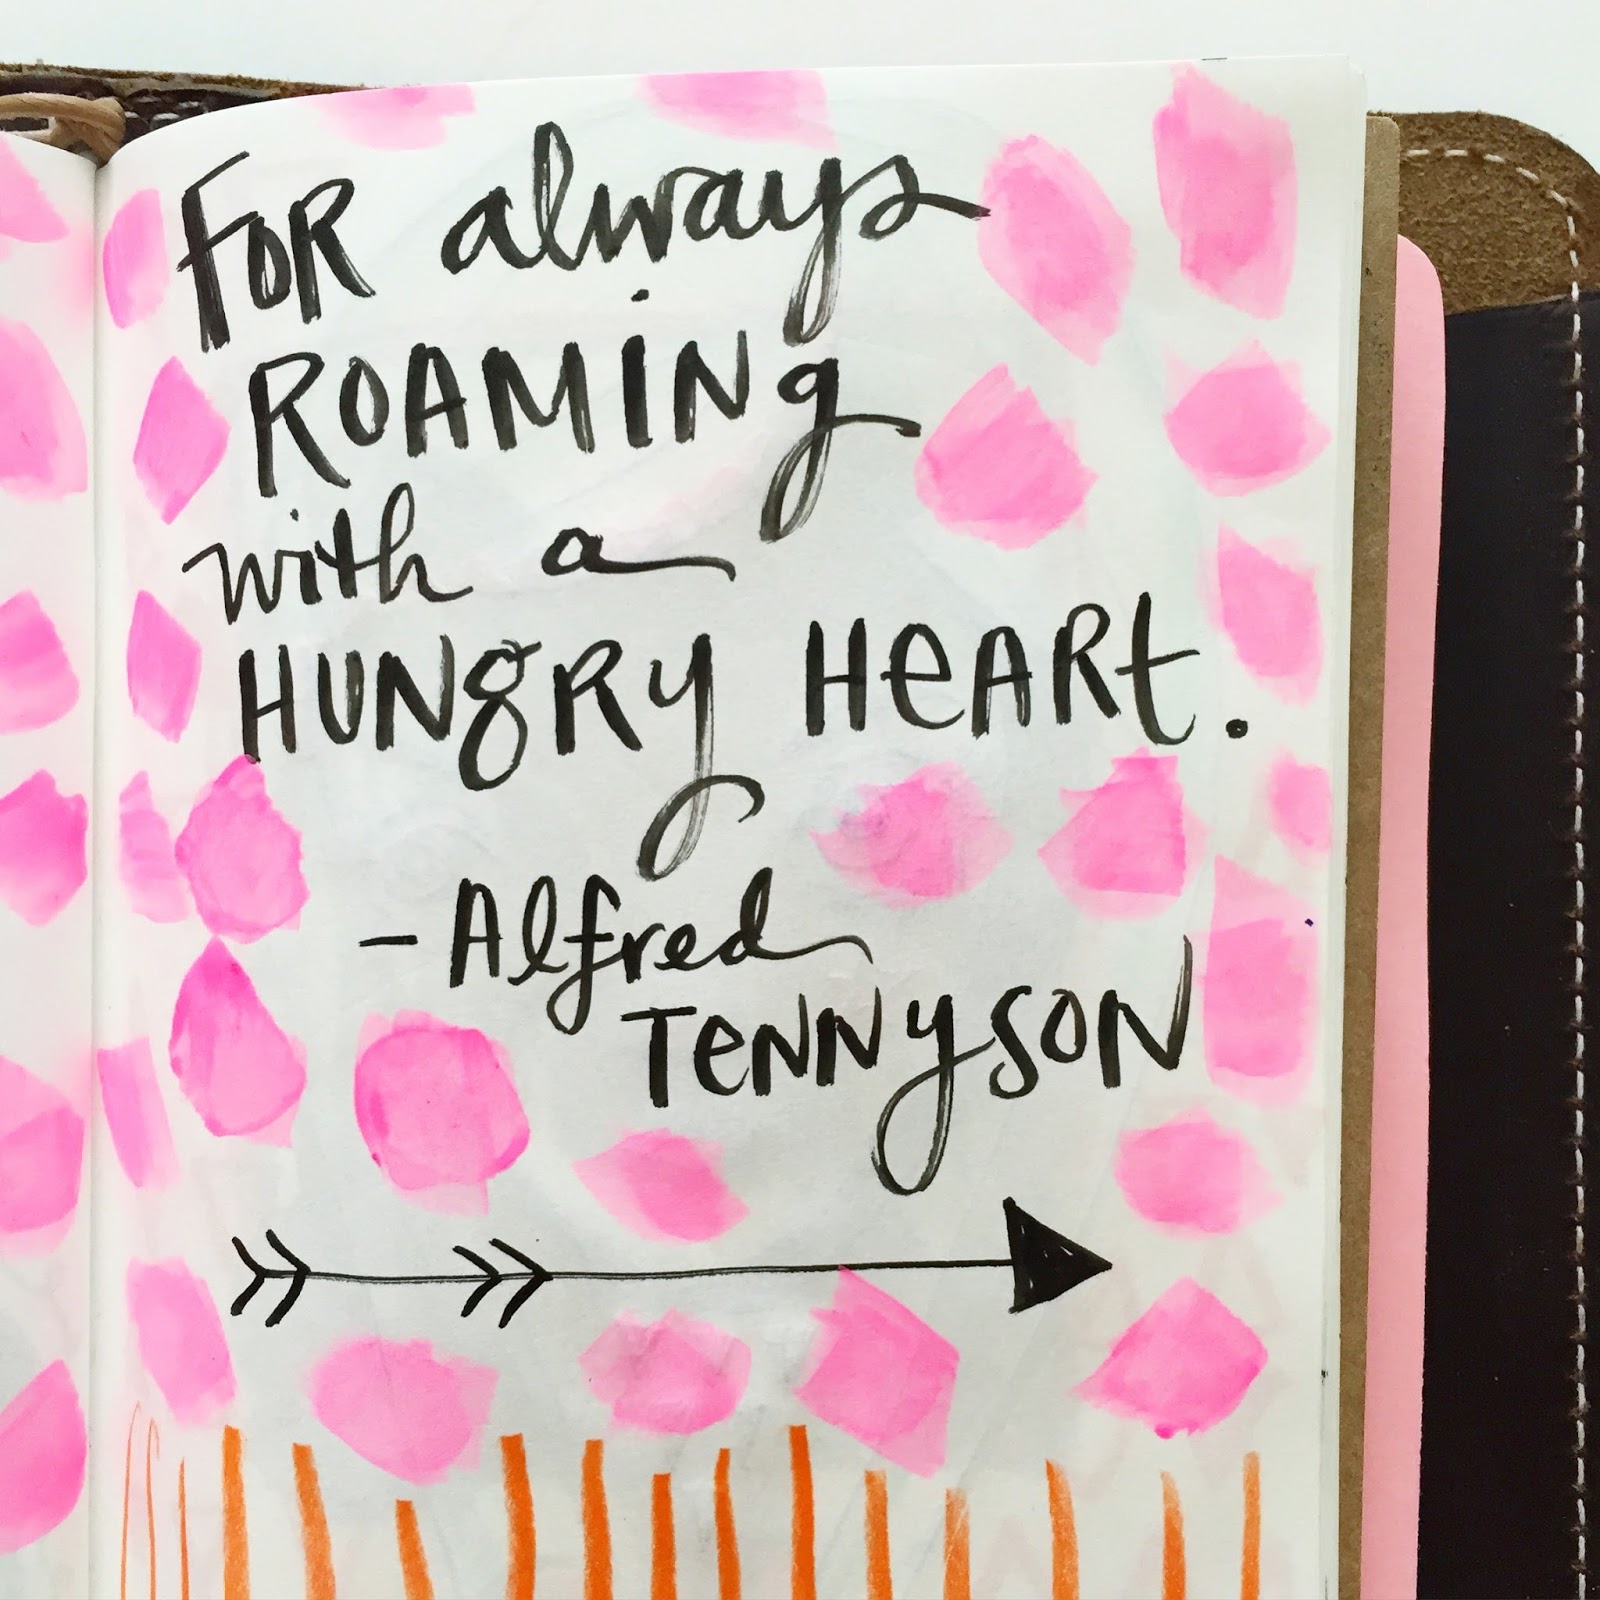 FOR always
ROAMiNg
with a
HUNgRy HeARt.
- Alfred
TeNNysoN